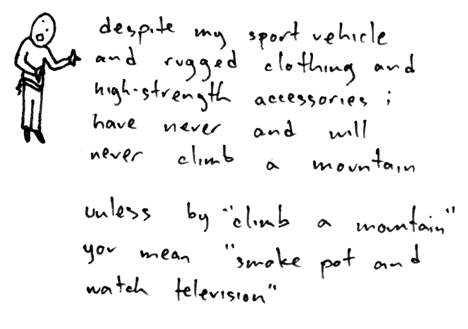 despite my sport vehicle
and rugged clothing and
high-strength accessories i
have never and will
never climb a mountain
unless by "climb a mountain"
you mean "smoke pot and
watch television"